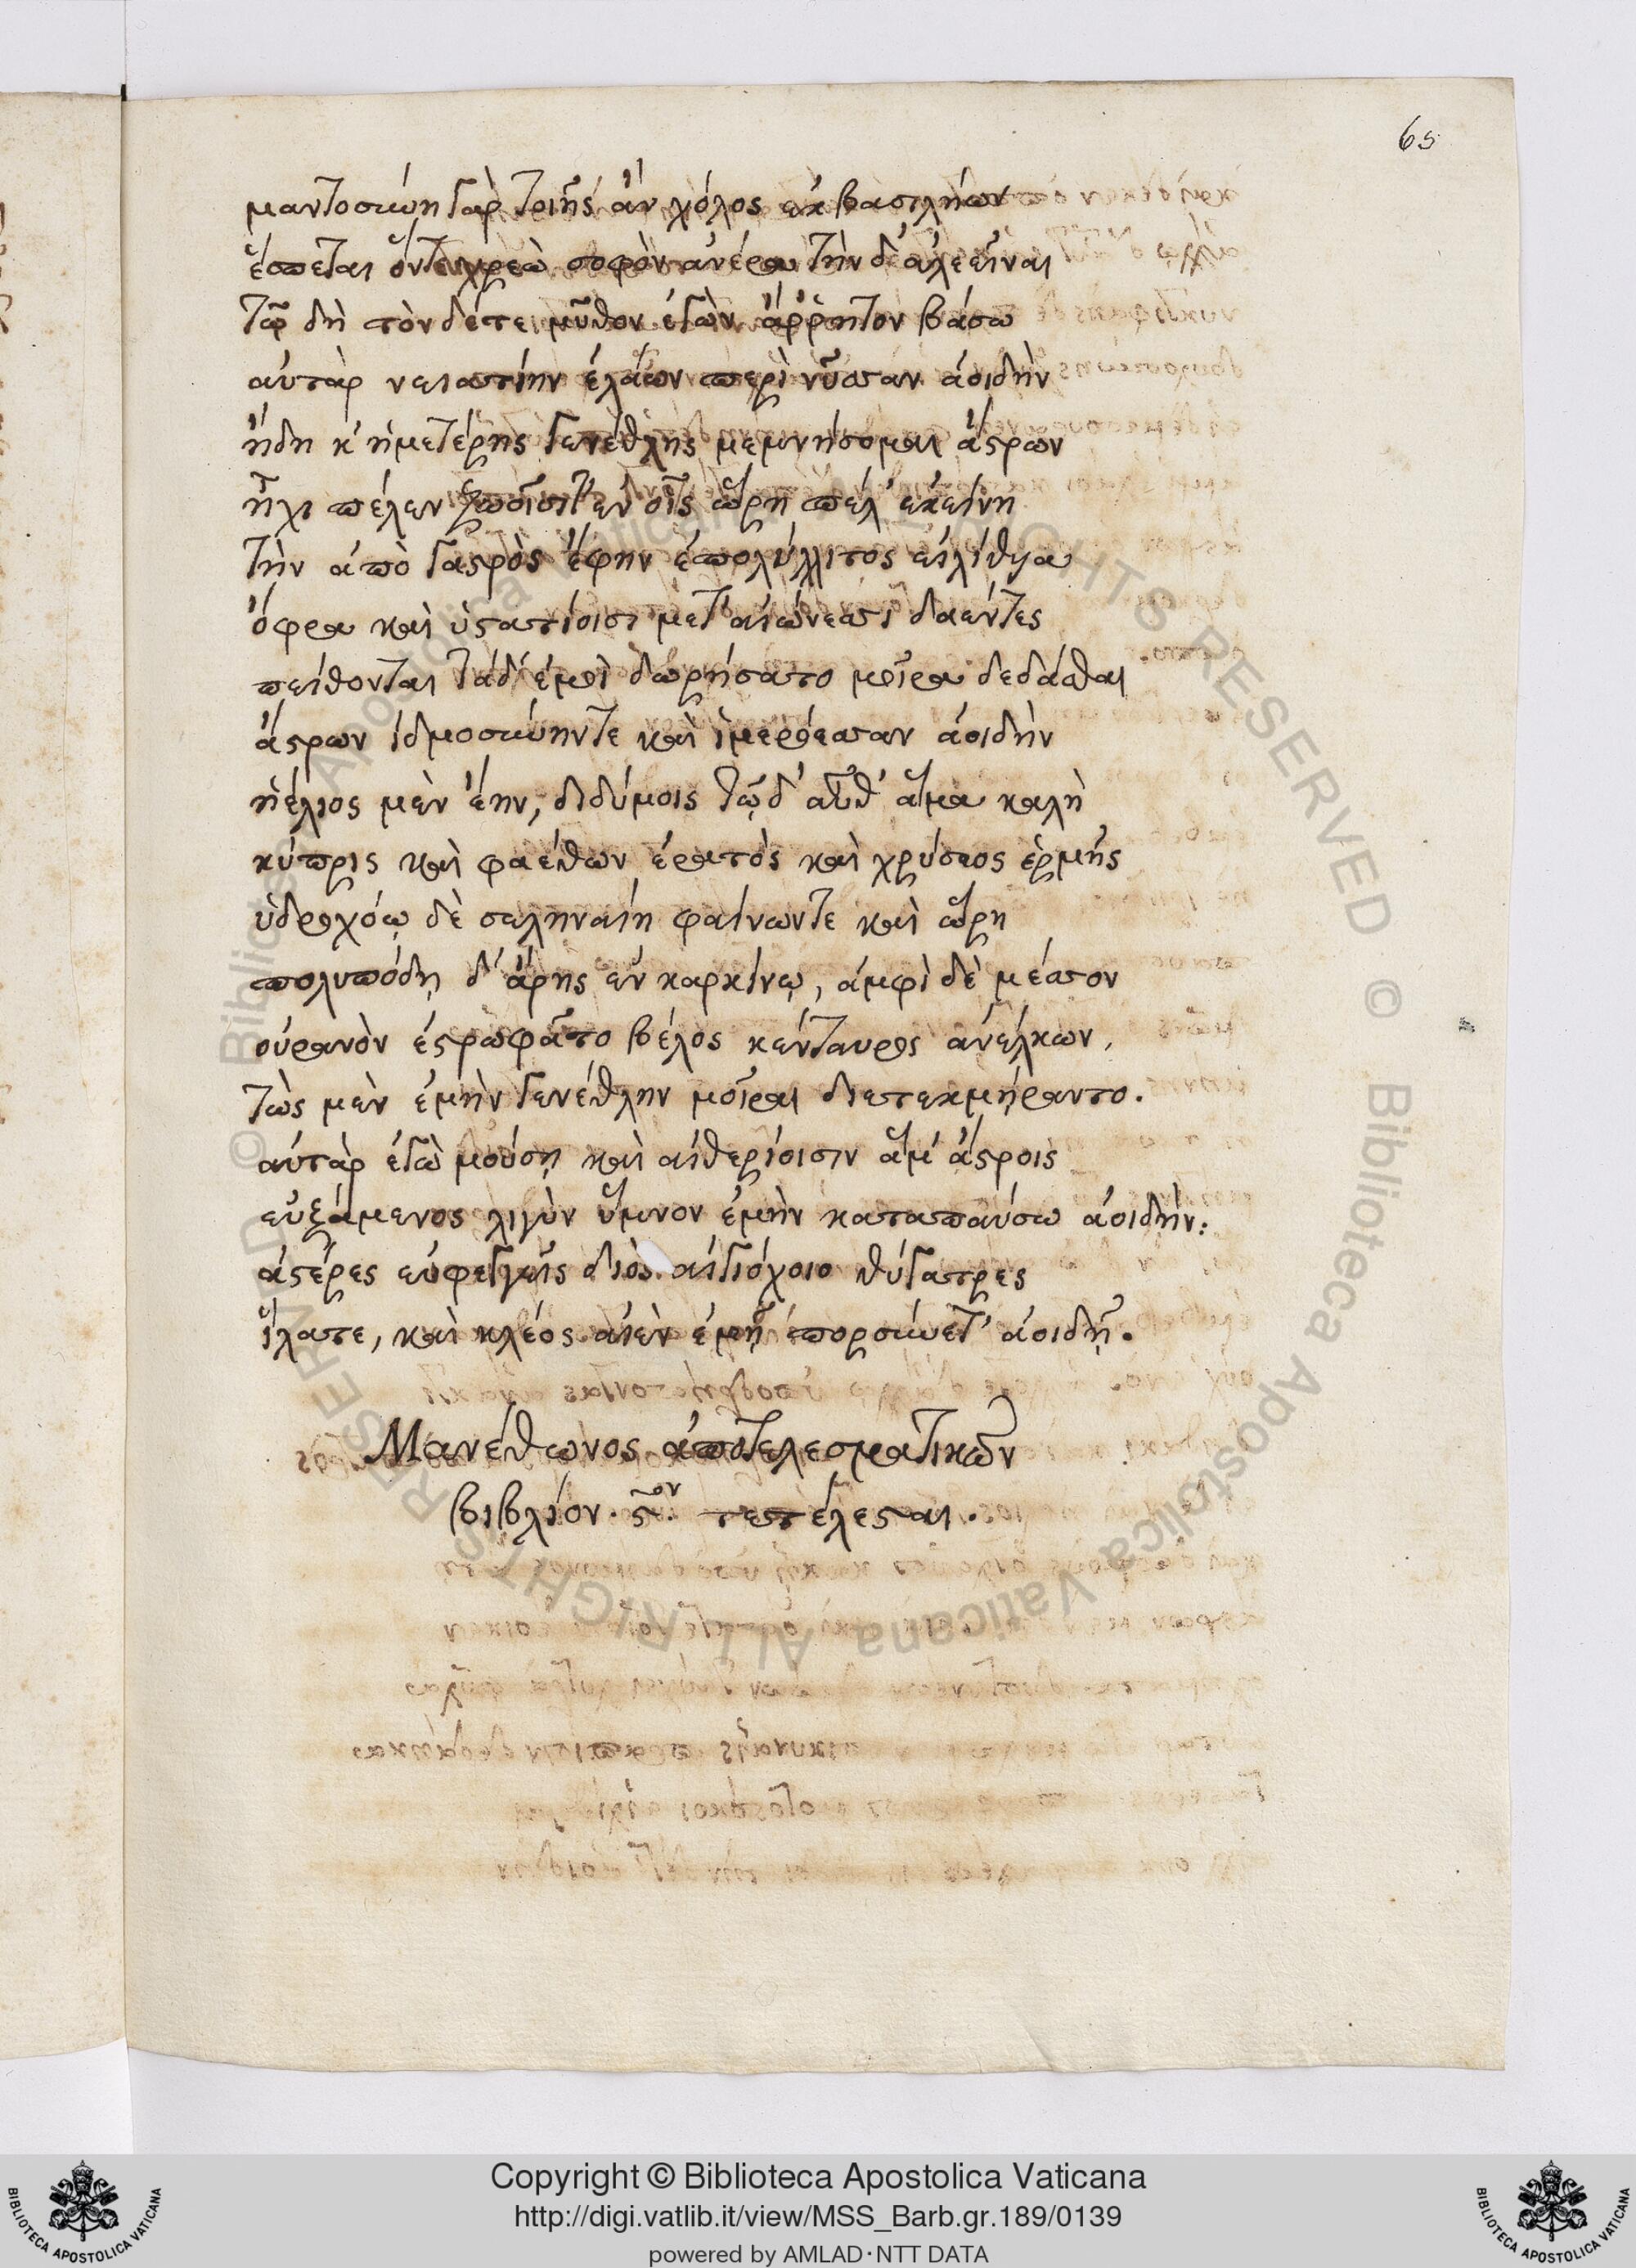 65
μαντοσύνη γὰρ τριῆς ἀν χόλος ἐκ βασιλήων
ἕσπεται ὅντε χρεὼ σοφὸν ἀνέρα τὴν δ' ἀλεεῖναι
τῷ δὴ τὸν δέτε μῦθον ἐγὼν ἄῤῥητον ἐάσω
αὐτὰρ νειατίην ἐλάων περὶ νύσσαν ἀοιδὴν
ἤδη κ' ἡμετέρης γενέθλης μεμνήσομαι ἄστρων
ἧχι πέλεν ζωοῖσιτ' ἐν οἷς ὥρη πέλ' ἐκείνη
τὴν ἀπὸ γαστρὸς ἔφην ἐπολύλλιτος εἰλίθυα
ὄφρα καὶ ὑστατίοισι μετ' αἰώνεσσι δαέντες
πείθονται τάδ' ἐμοὶ δωρήσατο μοῖρα δεδάσθαι
ἄστρων ἰδμοσύνηντε καὶ ἱμερόεσσαν ἀοιδὴν
ἠέλιος μὲν ἔην, διδύμοις τῷδ' αὖθ' ἅμα καλὴ
κύπρις καὶ φαέθων ἐρατὸς καὶ χρύσεος ἑρμῆς
ὑδροχόῳ δὲ σεληναίη φαίνωντε καὶ ὥρη
πολυπόδῃ δ' ἄρης ἐν καρκίνῳ, ἀμφὶ δὲ μέσσον
οὐρανὸν ἐστρωφᾶτο βέλος κένταυρος ἀνέλκων,
τὼς μὲν ἐμὴν γενέθλην μοῖραι διετεκμήραντο.
αὐτὰρ ἐγὼ μούσῃ καὶ αἰθερίοισιν ἅμ' ἄστροις
εὐξάμενος λιγὺν ὕμνον ἐμὴν καταπαύσω ἀοιδήν:
ἀστέρες εὐφεγγεῖς διὸς αἰγιόχοιο θύγατρες
ἵλατε, καὶ κλέος αἰὲν ἐμῇ πορσύνετ' ἀοιδῇ.
Μανέθωνος ἀποτελεσματικῶν
βιβλίον. ϛον. τετέλεσται.
Copyright © Biblioteca Apostolica Vaticana
http://digi.vatlib.it/view/MSS_Barb.gr.189/0139
powered by AMLAD·NTT DATA
BIBLIOTECA APOSTOLICA VATICANA
BIBLIOTECA APOSTOLICA VATICANA
© Biblioteca Apostolica Vaticana ALL RIGHTS RESERVED © Biblioteca Apostolica Vaticana ALL RIGHTS RESERVED